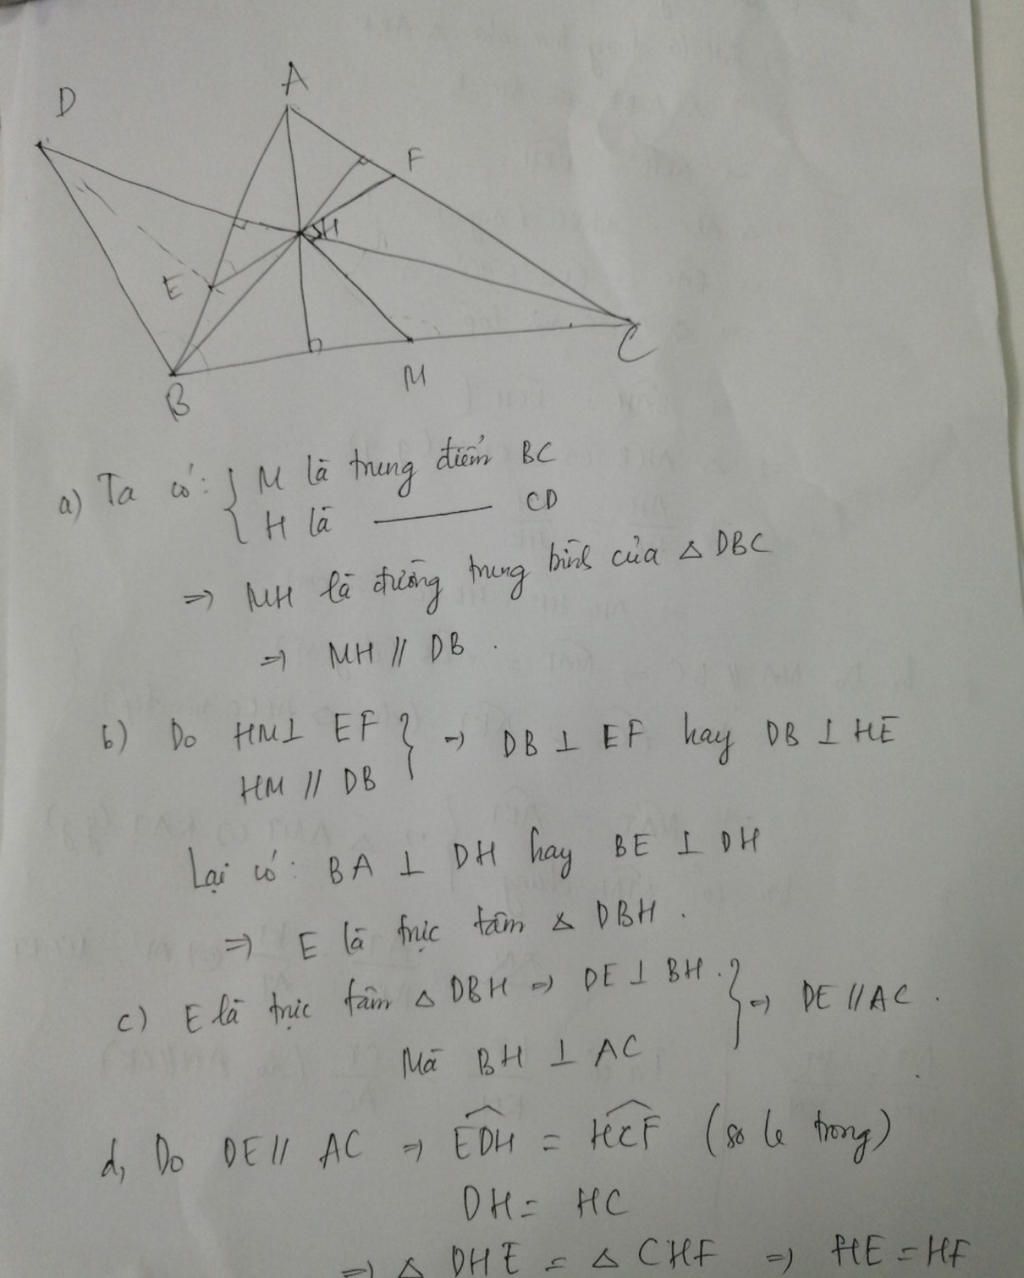 A
D
F
H
E
C
M
B
a) Ta có: { M là trung điểm BC
H là ——— CD
=> MH là đường trung bình của △ DBC
=> MH // DB .
b) Do HM ⊥ EF } => DB ⊥ EF hay DB ⊥ HE
HM // DB
Lại có: BA ⊥ DH hay BE ⊥ DH
=> E là trực tâm △ DBH .
c) E là trực tâm △ DBH => DE ⊥ BH . } => DE // AC .
Mà BH ⊥ AC
d, Do DE // AC => \widehat{EDH} = \widehat{HCF} (so le trong)
DH = HC
=> △ DHE = △ CHF => HE = HF